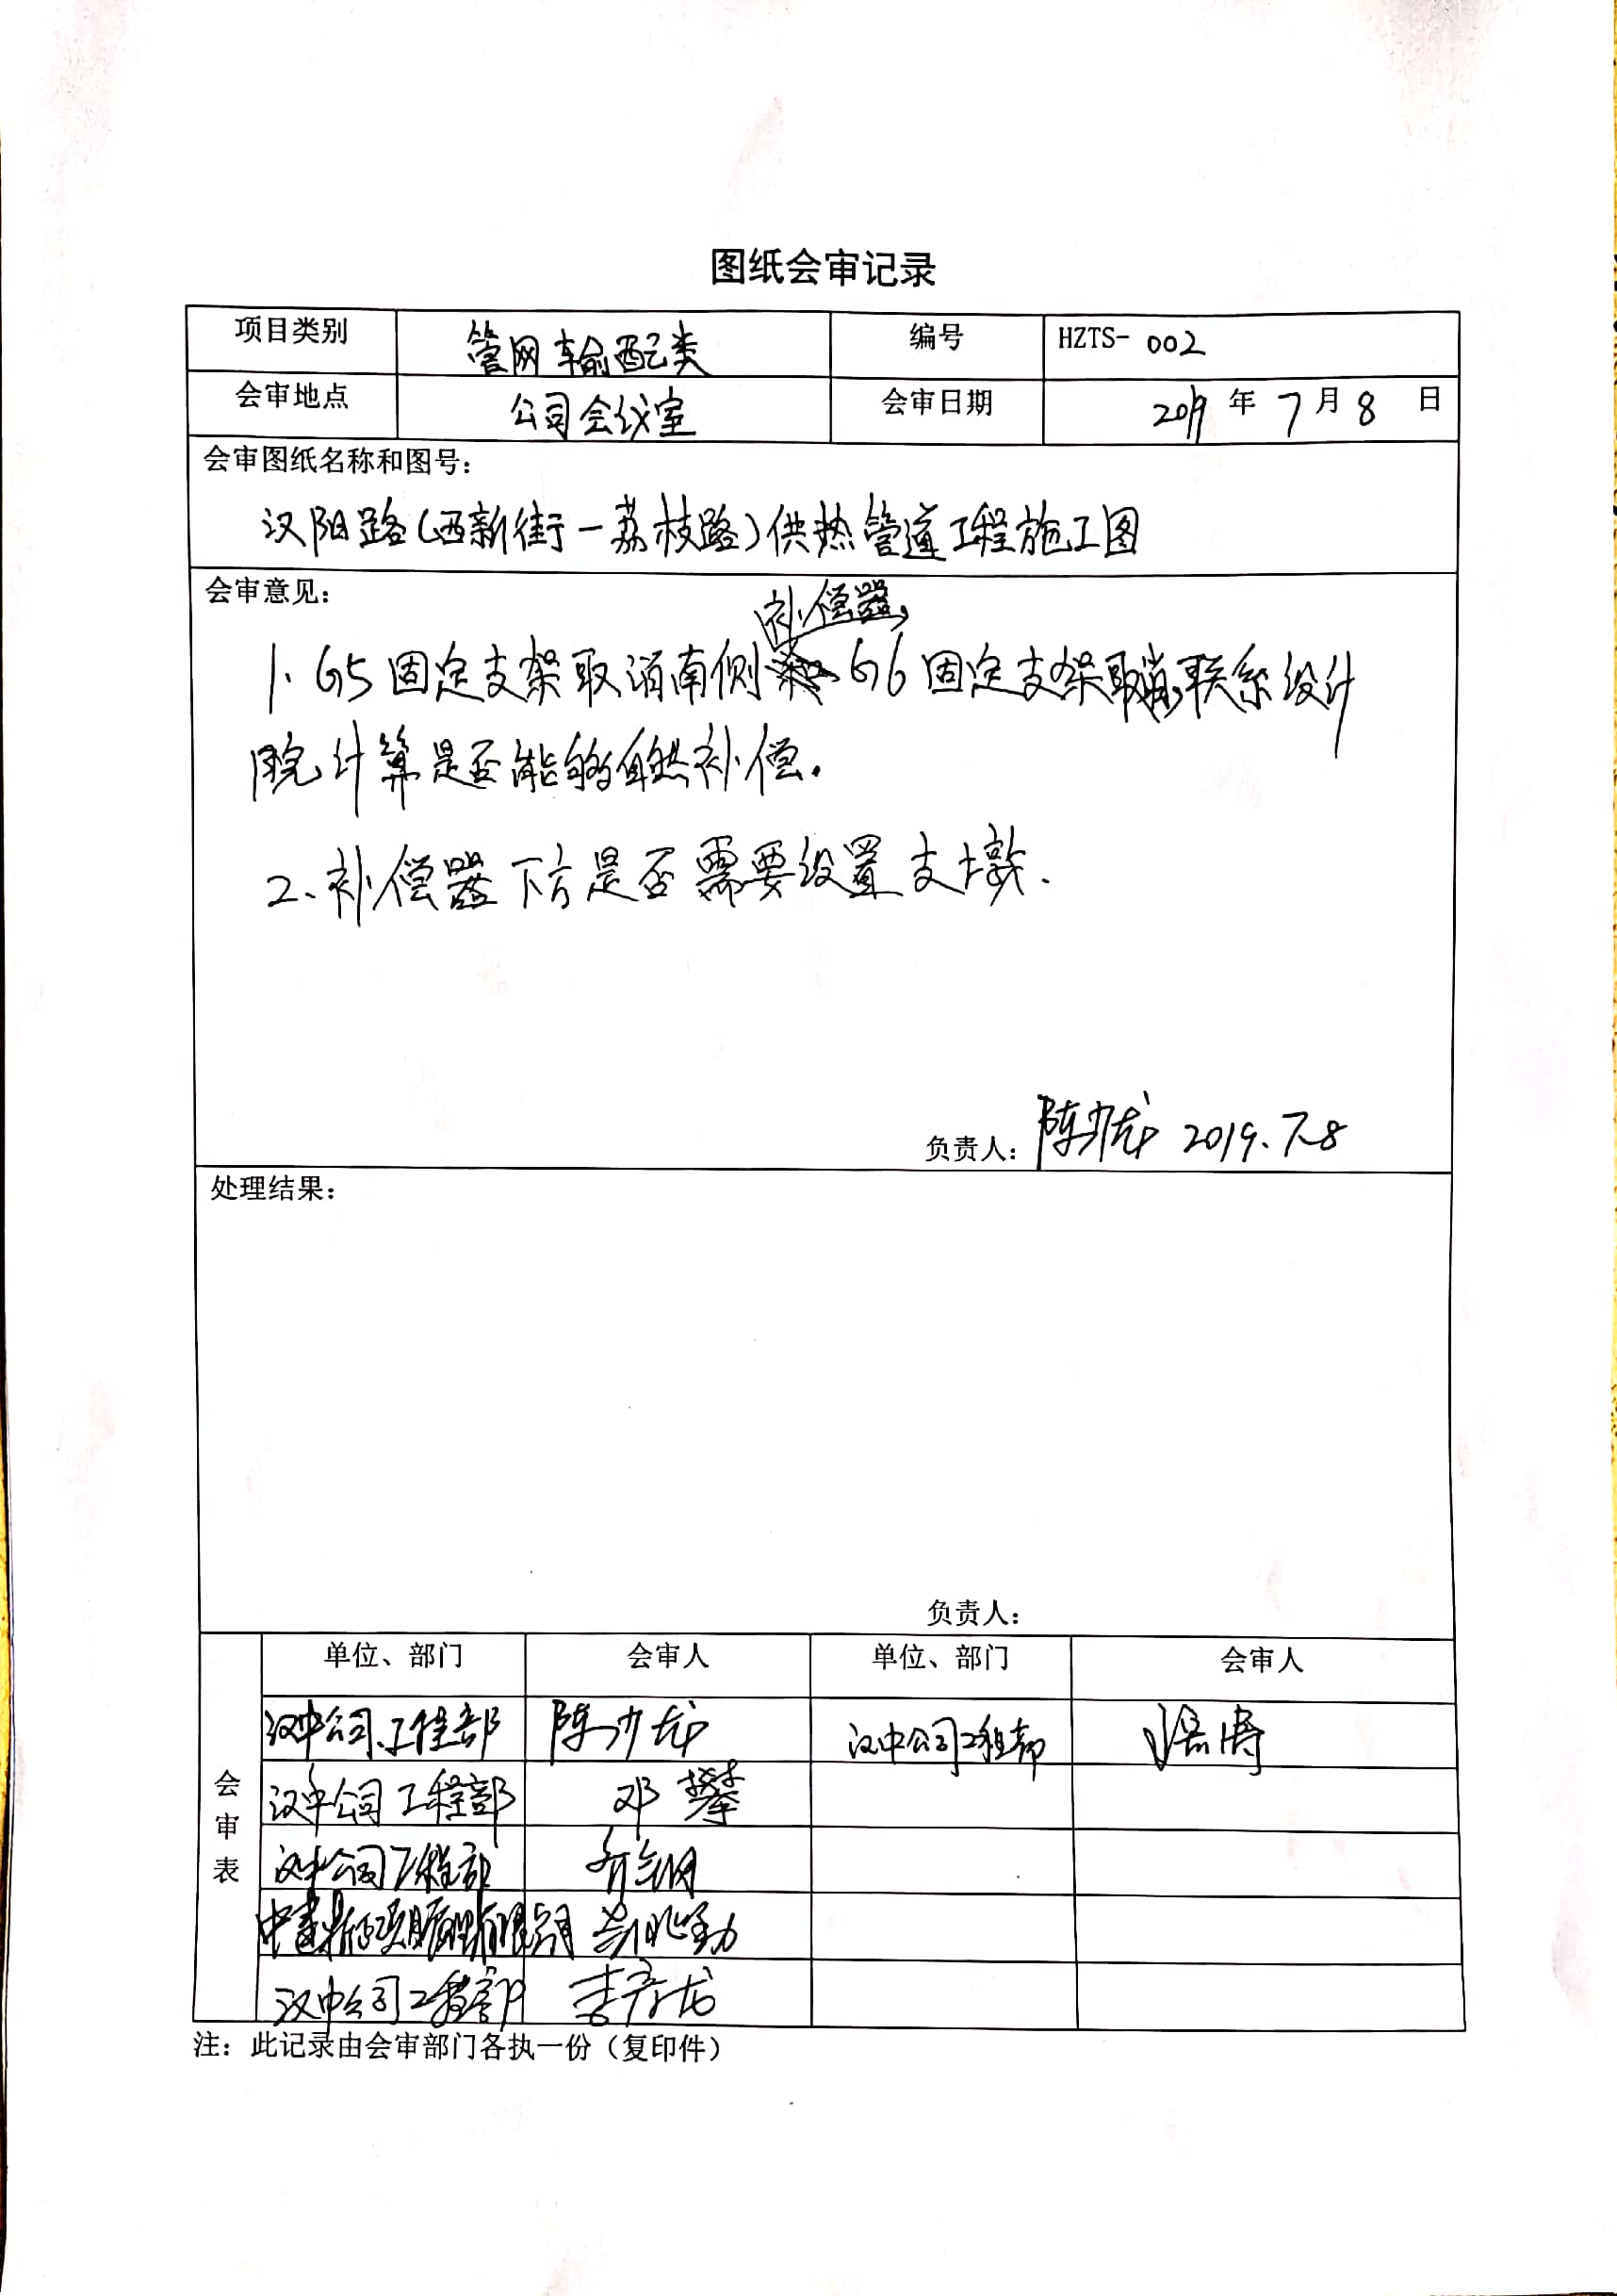 图纸会审记录
项目类别 管网输配类 编号 HZTS-002
会审地点 公司会议室 会审日期 2019年7月8日
会审图纸名称和图号：
汉阳路(西新街一荔枝路)供热管道工程施工图
会审意见：
补偿器，
1、G5固定支架取消南侧 G6固定支架取消，联系设计
院计算是否能够自然补偿。
2、补偿器下方是否需要设置支墩．
负责人： 陈 龙 2019.7.8
处理结果：
负责人：
会审表
单位、部门 会审人 单位、部门 会审人
汉中公司工程部 陈 龙 汉中公司工程部 涛
汉中公司工程部 邓攀
汉中公司工程部
中建 项目管理有限公司
汉中公司工程部 李彦龙
注：此记录由会审部门各执一份（复印件）